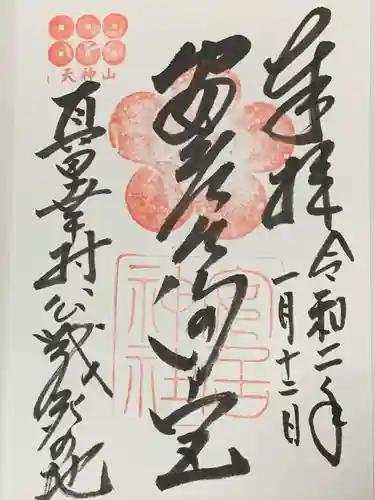 奉拝
令和二年
一月十二日
安居
神社
天神山
真田幸村公戦歿の地